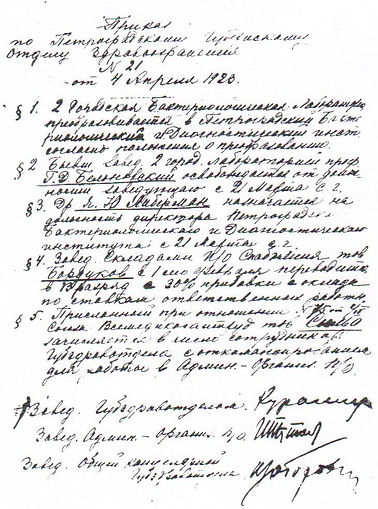 Приказ
по Петроградскому Губернскому
Отделу Здравоохранения
N 21
от 4 Апреля 1923.
§ 1. 2 Городская Бактериологическая Лаборатория
преобразовывается в Петроградский Бакте-
риологический и Диагностический инст.
согласно положения о
§ 2 Бывш. Завед. 2 город. лабораторией проф.
Г.Д. Белоновский освобождается от
заведующего с 21 Марта с.г.
§ 3. Др Я. Ю. Либерман назначается на
должность директора Петроградск.
Бактериологического и Диагностического
института с 21 Марта с.г.
§ 4. Завед. Складами П/О Снабжения тов.
с 1го Февраля
в 13 разряд с 30% прибавки с оклада
по ставкам ответственных работн.
§ 5. Присланный при отношении
Союза Всемедикосантруд тов.
зачисляется в число сотрудников
Губздравотдела с откомандированием
для работы в Админ.-Организ. П/О
Завед. Губздравотделом
Завед. Админ.-Организ. П/о
Завед. Общей канцелярией
Губздравотдела